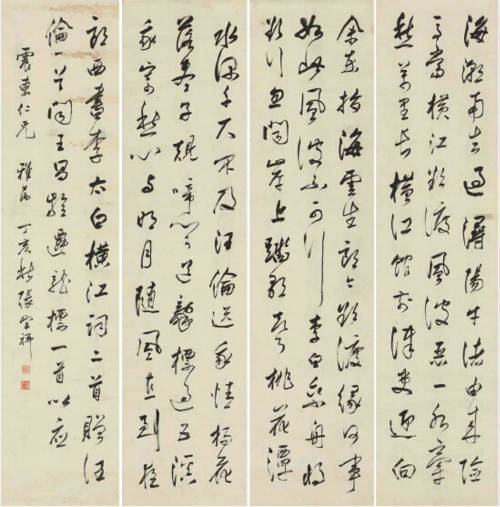 海潮南去過潯陽牛渚由来險
馬當橫江欲渡風波惡一水牽
愁萬里長橫江館前津吏迎向
余東指海雲生郎今欲渡緣何事
如此風波不可行李白乘舟將
欲行忽聞岸上踏歌聲桃花潭
水深千尺不及汪倫送我情楊花
落盡子規啼聞道龍標過五溪
我寄愁心與明月隨風直到夜
郎西書李太白橫江詞二首贈汪
倫一首聞王昌齡遷龍標一首以應
震東仁兄 雅屬 丁亥秋張宗祥